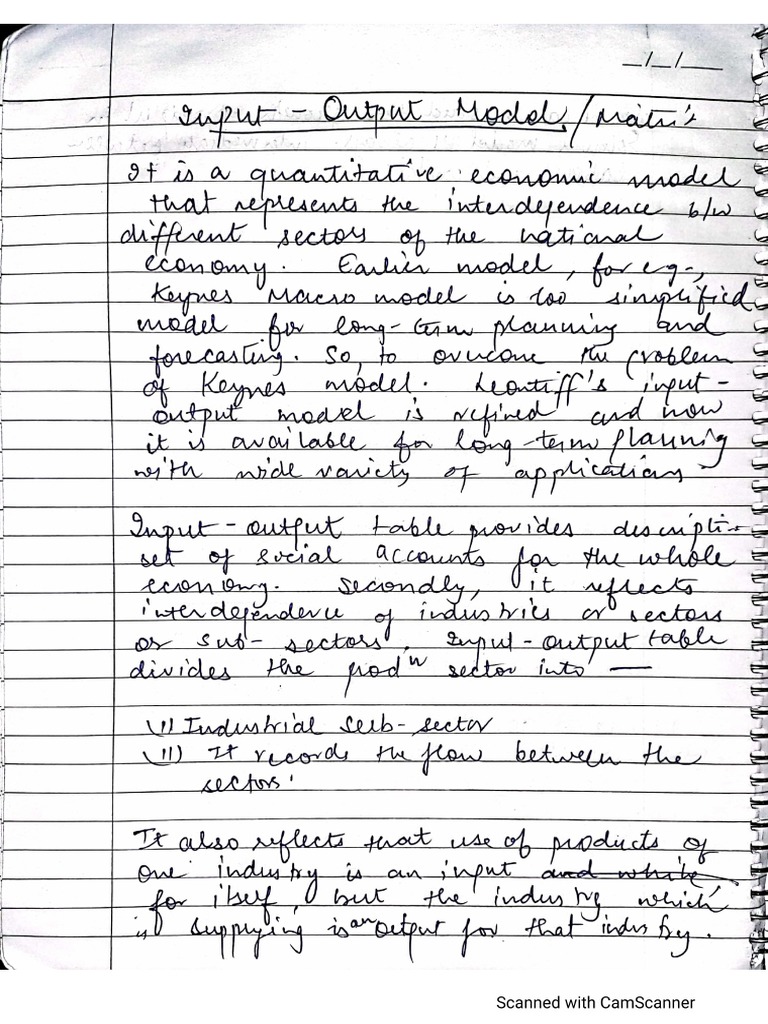 _/_/__
Input - Output Model/Matrix
It is a quantitative economic model
that represents the interdependence b/w
different sectors of the national
economy. Earlier model, for eg-,
Keynes Macro model is too simplified
model for long-term planning and
forecasting. So, to overcome the problem
of Keynes model. Leontiff's input-
output model is refined and now
it is available for long-term planning
with wide variety of applications
Input-output table provides descripti-
set of social accounts for the whole
economy. Secondly, it reflects
interdependence of industries or sectors
or sub-sectors. Input-output table
divides the prodn sector into —
(i) Industrial sub-sector
(ii) It records the flow between the
sectors.
It also reflects that use of products of
one industry is an input and while
for itself, but the industry which
is supplying is an output for that industry.
Scanned with CamScanner